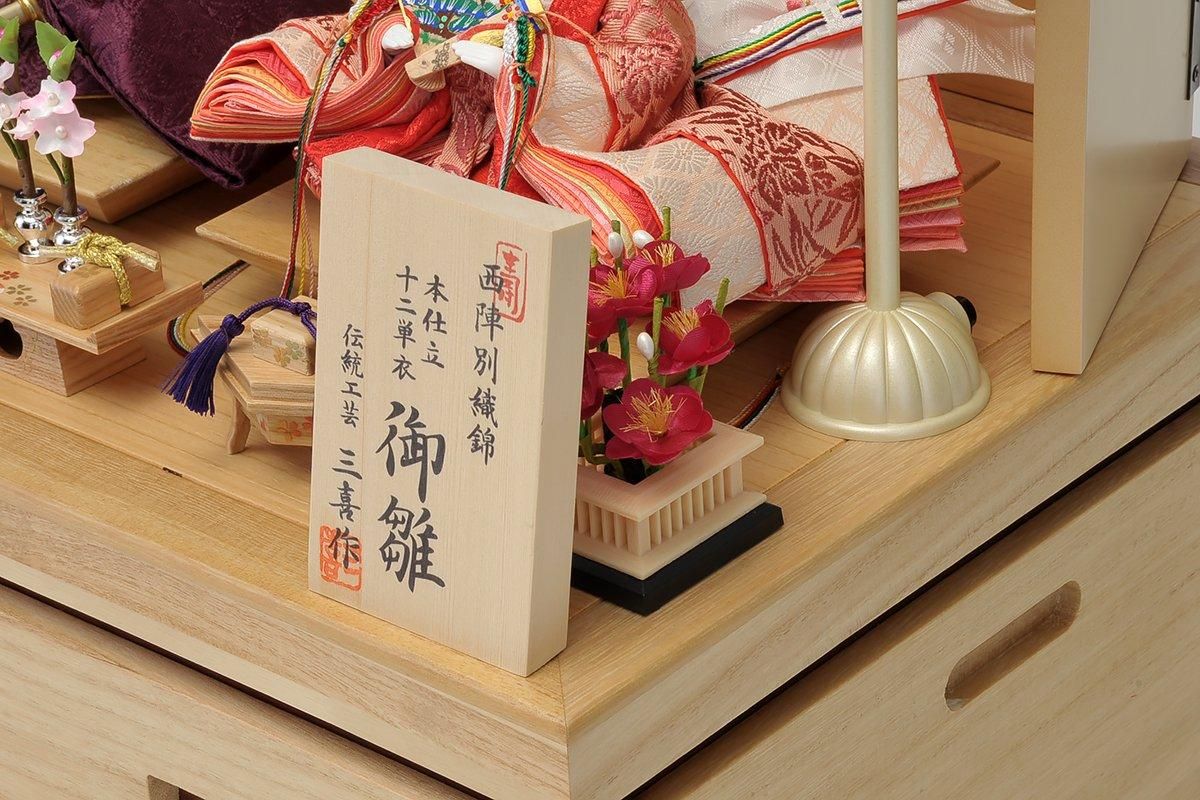 西陣別織錦
本仕立
十二単衣
御雛
伝統工芸 三喜作